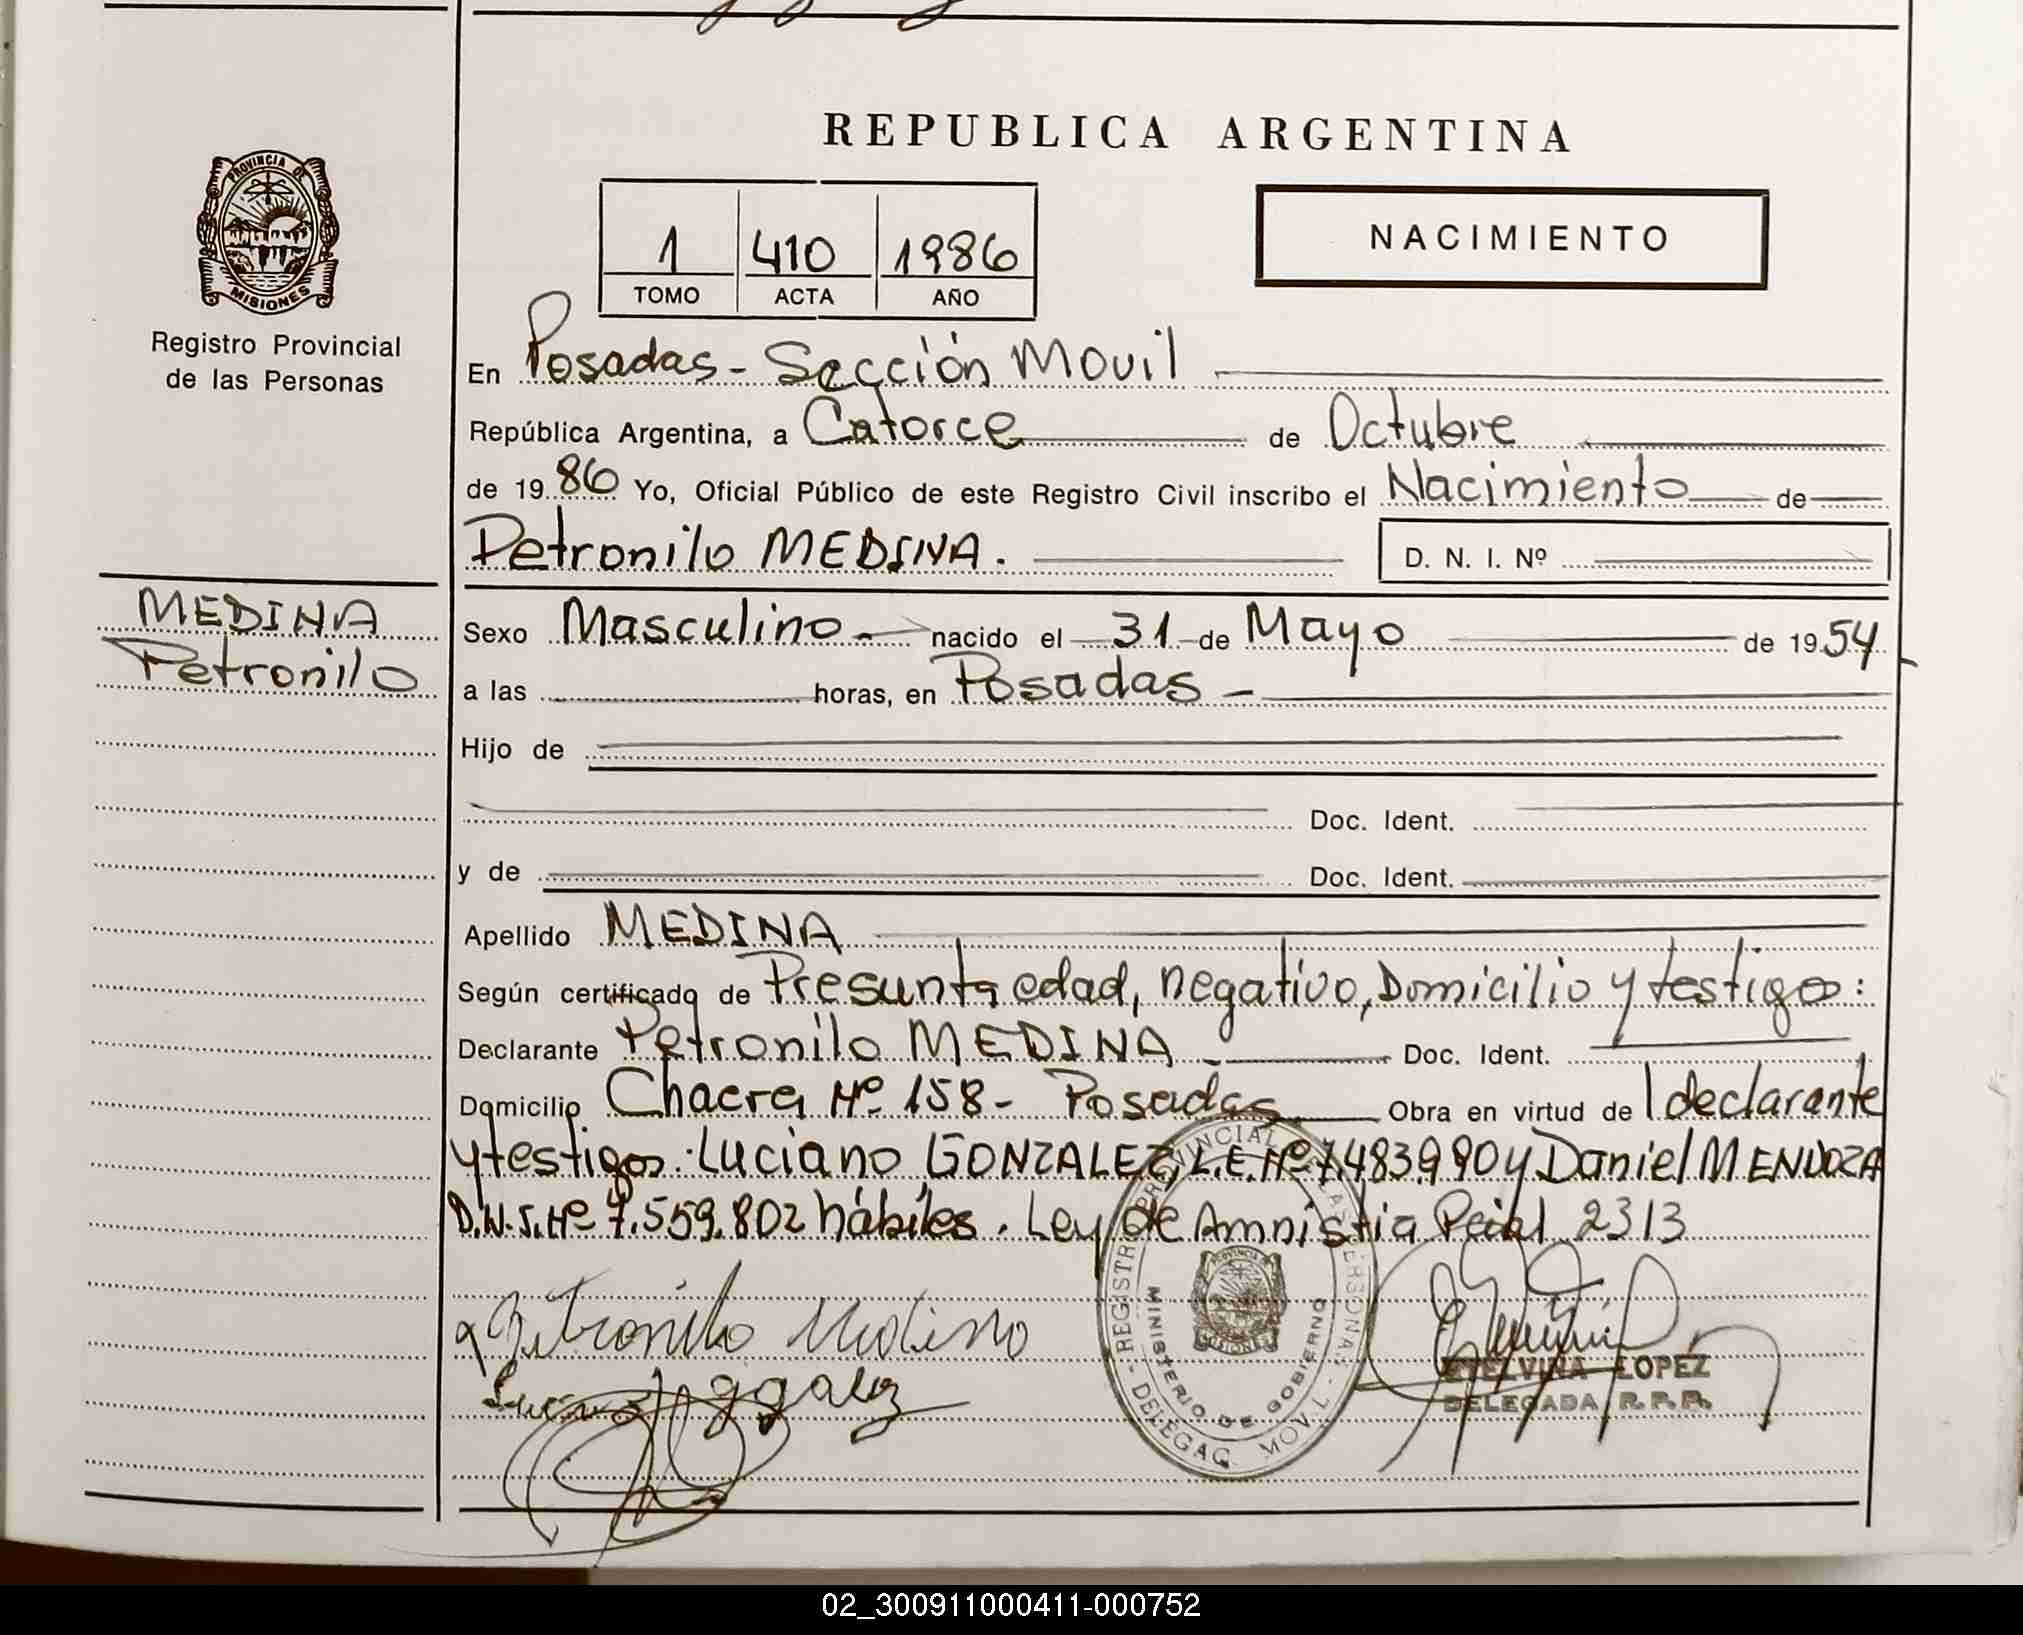 REPUBLICA ARGENTINA
PROVINCIA DE
MISIONES
Registro Provincial
de las Personas
1 410 1986
TOMO ACTA AÑO
NACIMIENTO
En Posadas - Sección Movil
República Argentina, a Catorce de Octubre
de 1986 Yo, Oficial Público de este Registro Civil inscribo el Nacimiento de
Petronilo MEDINA. D. N. I. Nº
MEDINA
Petronilo
Sexo Masculino - nacido el 31 de Mayo de 1954
a las horas, en Posadas -
Hijo de
Doc. Ident.
y de Doc. Ident.
Apellido MEDINA
Según certificado de Presunta edad, negativo, Domicilio y testigos:
Declarante Petronilo MEDINA - Doc. Ident.
Domicilio Chacra Nº 158 - Posadas Obra en virtud de l declarante
y testigos: Luciano GONZALEZ L.E. Nº 7.483.990 y Daniel MENDOZA
D.N.I. Nº 7.559.802 hábiles. Ley de Amnistia Pcial 2313
Petronilo Medino
REGISTRO PROVINCIAL DE LAS PERSONAS
MINISTERIO DE GOBIERNO
PROVINCIA DE
MISIONES
- DELEGAC. MOVIL -
ETELVINA LOPEZ
DELEGADA R.P.P.
02_300911000411-000752